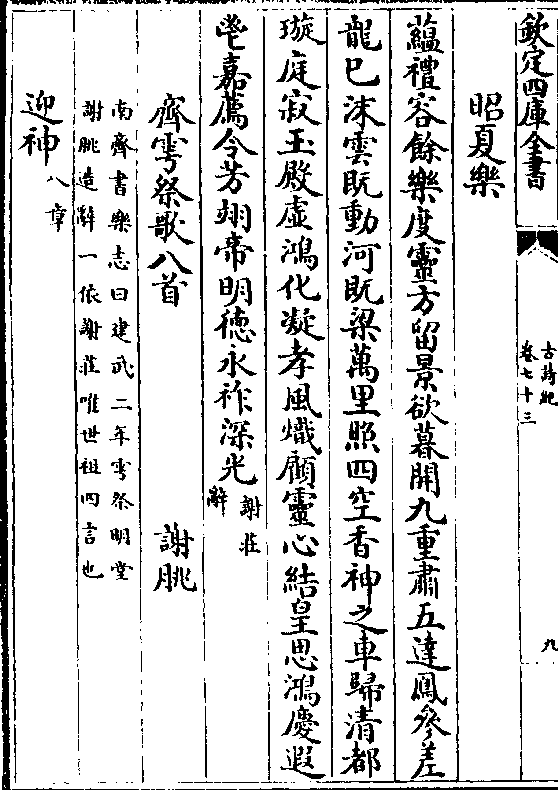 欽定四庫全書
古詩紀
卷七十三
九
昭夏樂
蘊禮容餘樂度靈方留景欲暮開九重肅五達鳳參差
龍已沫雲既動河既梁萬里照四空香神之車歸清都
璇庭寂玉殿虛鴻化凝孝風熾顧靈心結皇思鴻慶遐
鬯嘉薦令芳翊帝明德永祚深光謝莊
辭
齊雩祭歌八首 謝朓
南齊書樂志曰建武二年雩祭明堂
謝朓造辭一依謝莊唯世祖四言也
迎神八章